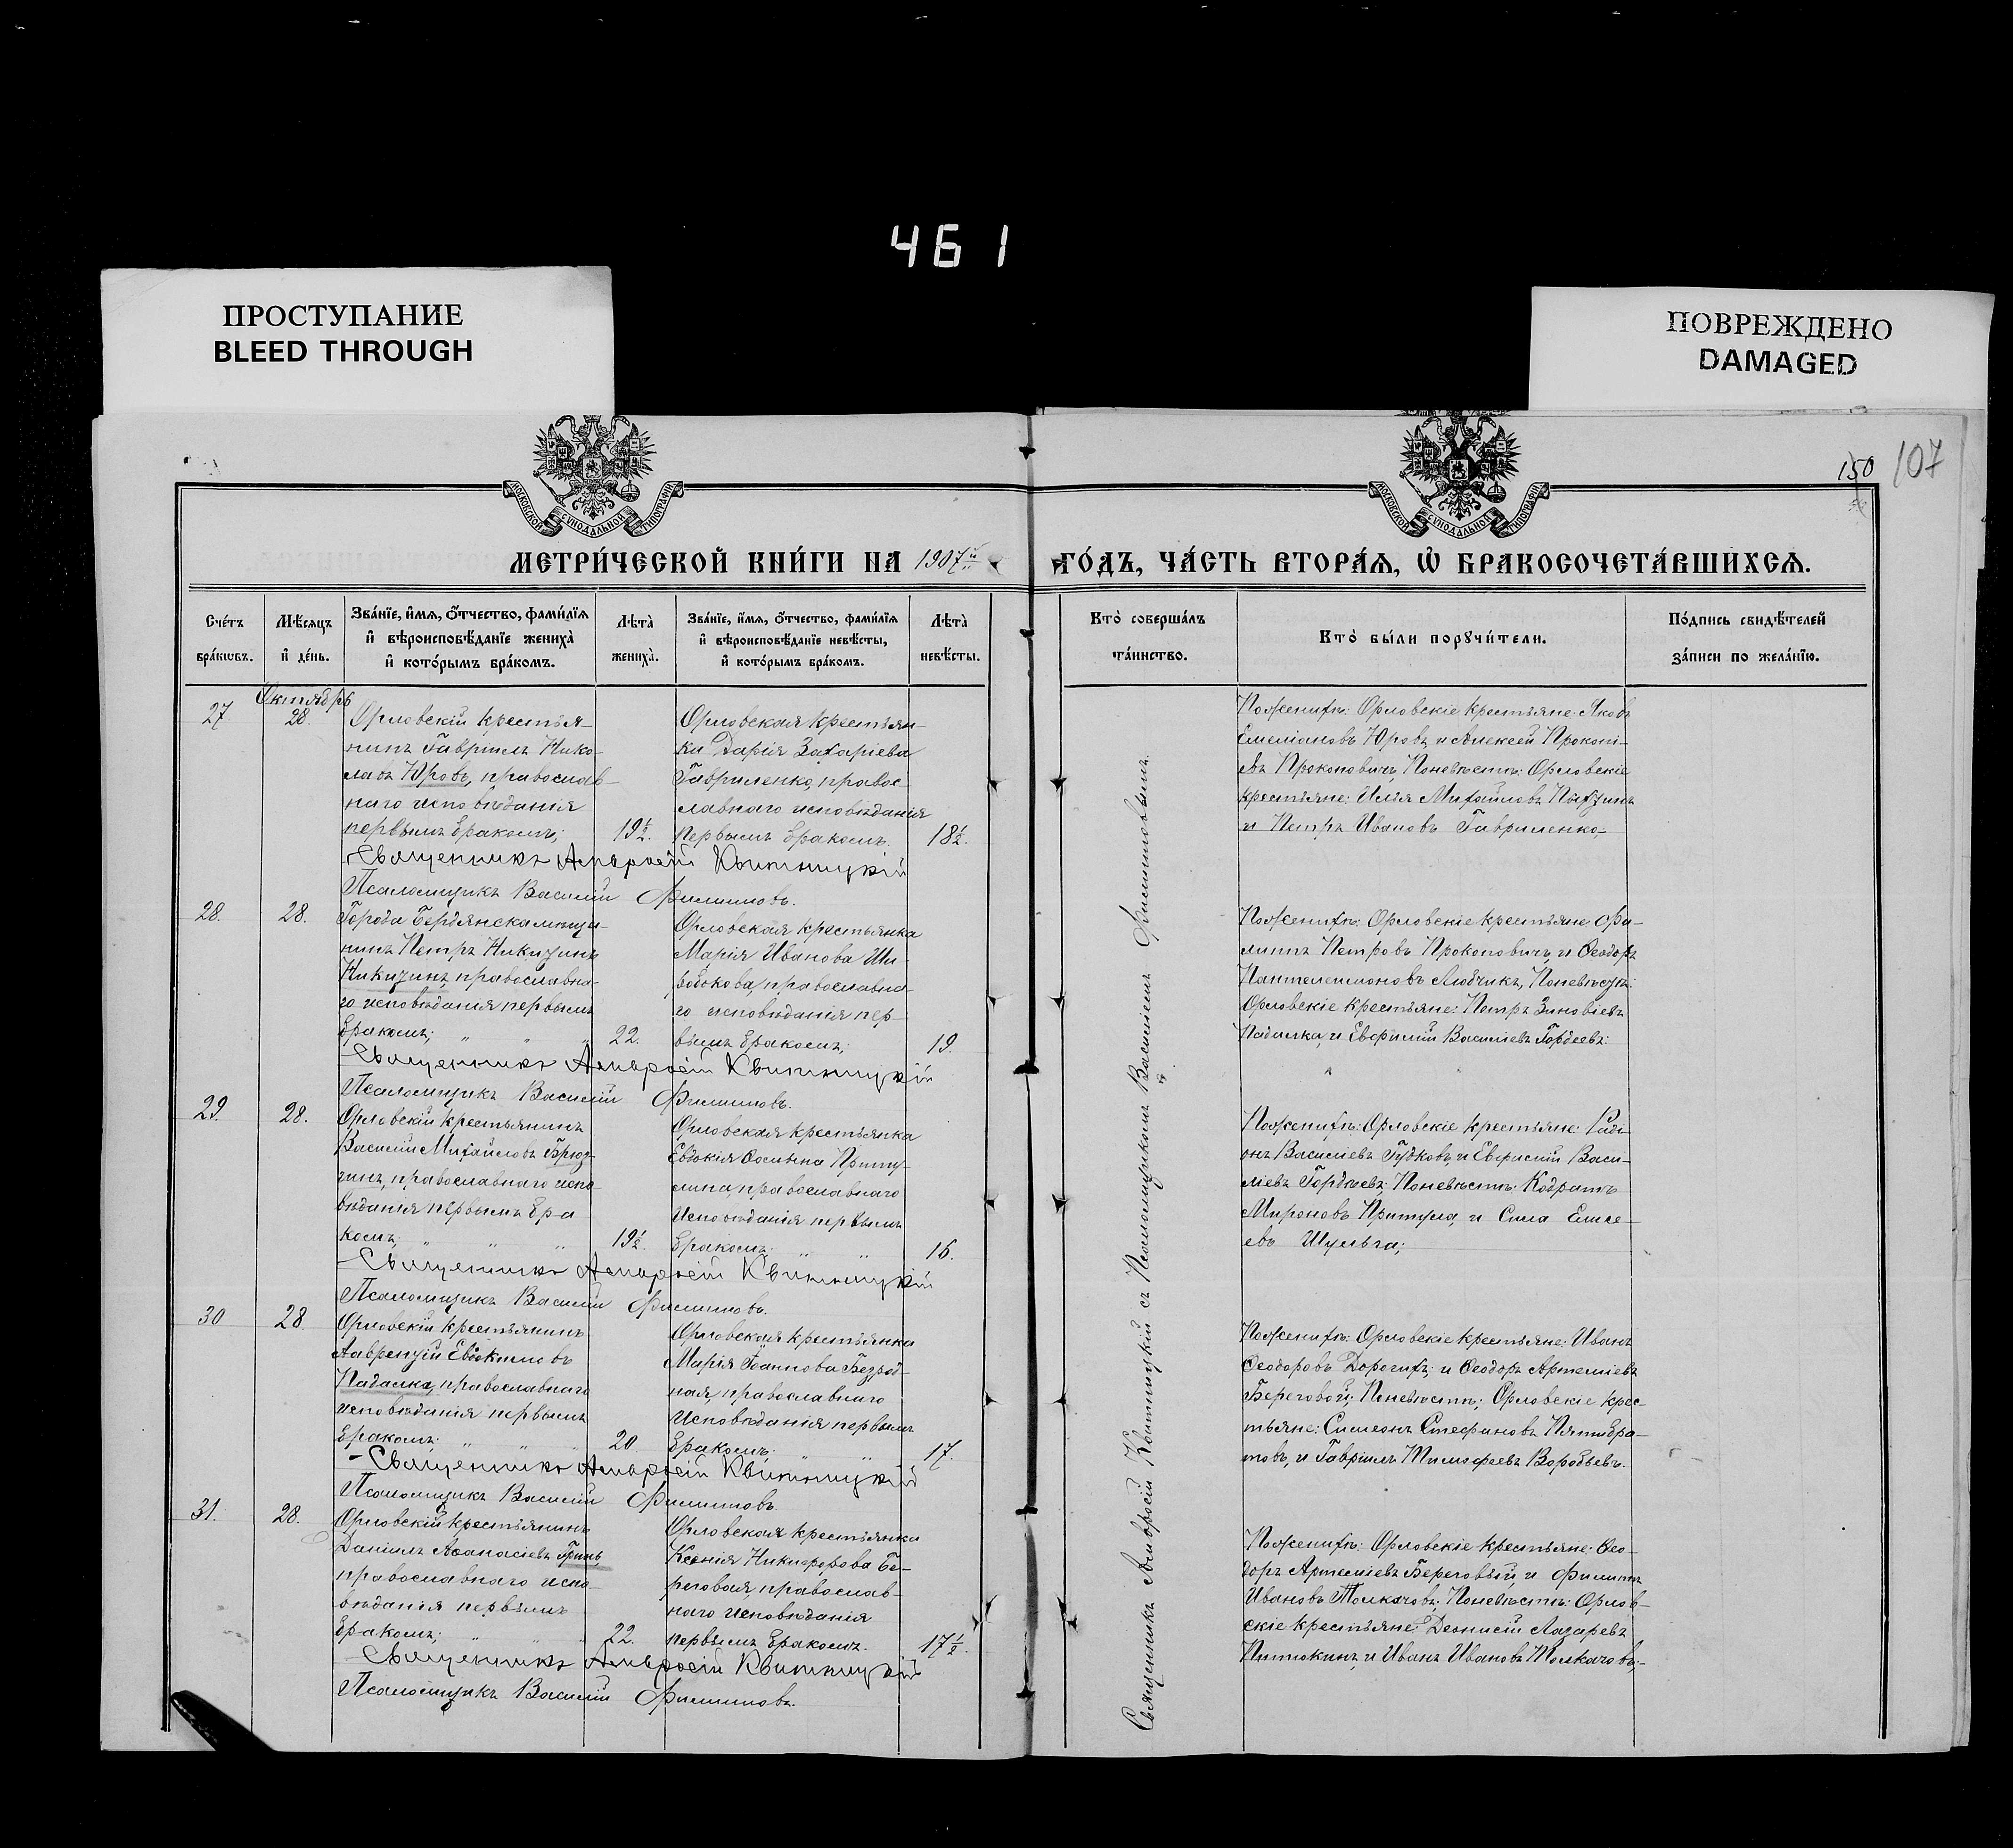 461
ПРОСТУПАНИЕ
BLEED THROUGH
ПОВРЕЖДЕНО
DAMAGED
МОСКОВСКОЙ СУНОДАЛЬНОЙ ТИПОГРАФІИ
МОСКОВСКОЙ СУНОДАЛЬНОЙ ТИПОГРАФІИ
150
107
МЕТРИ́ЧЕСКОЙ КНИ́ГИ НА 1907й
ГО́ДЪ, ЧА́СТЬ ВТОРА́Ѧ, Ѡ҆ БРАКОСОЧЕТА́ВШИХСѦ.
Сче́тъ
бра́кѡвъ.
Мѣ́сяцъ
и҆ де́нь.
Зва́нїе, и҆́мѧ, ѻ҆́тчество, фами́лїѧ
и҆ вѣроисповѣ́данїе жениха̀
и҆ кото́рымъ бра́комъ.
Лѣ́та̀
жениха̀.
Зва́нїе, и҆́мѧ, ѻ҆́тчество, фами́лїѧ
и҆ вѣроисповѣ́данїе невѣ́сты,
и҆ кото́рымъ бра́комъ.
Лѣ́та̀
невѣ́сты.
Кто̀ соверша́лъ
та́инство.
Кто̀ бы́ли порꙋчи́тели.
По́дпись свидѣ́телей
за́писи по жела́нїю.
Октябрь
27.
28.
Орловскій крестья-
нинъ Гавріилъ Нико-
лаевъ Юровъ, православ-
наго исповѣданія
первымъ бракомъ;
19½.
Орловская крестьян-
ка Дарія Захаріева
Гавриленко, правос-
лавнаго исповѣданія
первымъ бракомъ.
18½.
Поженихѣ: Орловскіе крестьяне: Яковъ
Емеліановъ Юровъ, и Алексей Прокопі-
евъ Прокоповичъ, Поневѣстѣ: Орловскіе
крестьяне: Илья Михайловъ
и Петръ Ивановъ Гавриленко
Священникъ Амвросій Квитницкій
Псаломщикъ Василій Филиповъ.
28.
28.
Города Бердянска мѣща-
нинъ Петръ Никизинъ
Никизинъ, православна-
го исповѣданія первымъ
бракомъ; " " "
22.
Орловская крестьянка
Марія Иванова Ши-
бокова, православна-
го исповѣданія пер-
вымъ бракомъ;
19.
Поженихѣ: Орловскіе крестьяне: Фи-
липпъ Петровъ Прокоповичъ, и Ѳеодоръ
Пантелеимоновъ Любчикъ, Поневѣстѣ:
Орловскіе крестьяне: Петръ Зиновіевъ
Падалка, и Евфимій Василіевъ Гордеевъ.
Священникъ Амвросій Квитницкій
Псаломщикъ Василій Филиповъ.
29.
28.
Орловскій крестьянинъ
Василій Михайловъ Брюз-
гинъ, православнаго испо-
вѣданія первымъ бра-
комъ; " " "
19½.
Орловская крестьянка
Евдокія Осипова Приту-
лина, православнаго
исповѣданія первымъ
бракомъ; " "
16.
Поженихѣ: Орловскіе крестьяне: Роди-
онъ Василіевъ Гудковъ, и Евфимій Васи-
ліевъ Гордѣевъ; Поневѣстѣ: Кодратъ
Мироновъ Притула, и Сила Елисе-
евъ Шульга;
Священникъ Амвросій Квитницкій
Псаломщикъ Василій Филиповъ.
30
28.
Орловскій крестьянинъ
Лаврентій Евдокимовъ
Падалка, православнаго
исповѣданія первымъ
бракомъ; " " "
20.
Орловская крестьянка
Марія Іоаннова Безрод-
ная, православнаго
исповѣданія первымъ
бракомъ; " "
17.
Поженихѣ: Орловскіе крестьяне: Иванъ
Ѳеодоровъ Дорогихъ; и Ѳеодоръ Артеміевъ
Береговой; Поневѣстѣ; Орловскіе крес-
тьяне: Симеонъ Стефановъ Пятибра-
товъ, и Гавріилъ Тимофеевъ Воробьевъ.
Священникъ Амвросій Квитницкій
Псаломщикъ Василій Филиповъ.
31.
28.
Орловскій крестьянинъ
Даніилъ Аѳанасіевъ Гринь,
православнаго испо-
вѣданія первымъ
бракомъ; " " "
22.
Орловская крестьянка
Ксенія Никифорова Бе-
реговая, православ-
наго исповѣданія
первымъ бракомъ.
17½.
Поженихѣ: Орловскіе крестьяне: Ѳео-
доръ Артеміевъ Береговый, и Филиппъ
Ивановъ Толкачовъ; Поневѣстѣ: Орлов-
скіе крестьяне: Деонисій Лазаревъ
и Иванъ Ивановъ Толкачовъ;
Священникъ Амвросій Квитницкій
Псаломщикъ Василій Филиповъ.
Священникъ Амвросій Квитницкій съ Псаломщикомъ Василіемъ Филиповымъ.